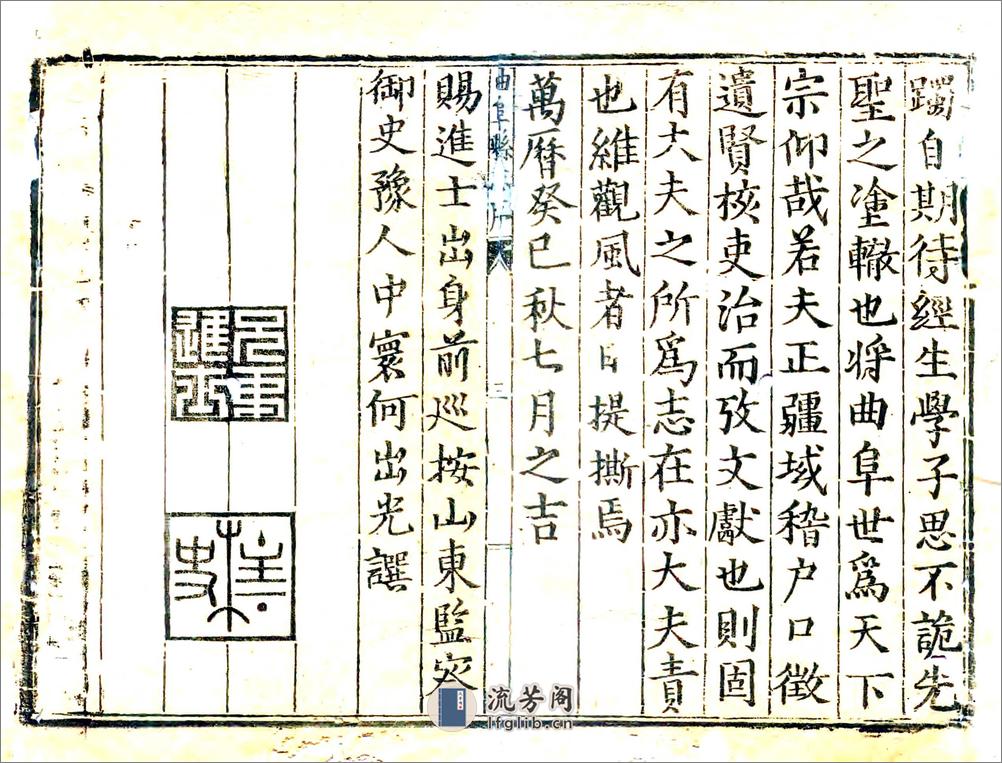 躅自期待經生學子思不詭先
聖之塗轍也將曲阜世爲天下
宗仰哉若夫正疆域稽户口徵
遺賢核吏治而攷文獻也則固
有大夫之所爲志在亦大夫責
也維觀風者日提撕焉
萬曆癸巳秋七月之吉
曲阜縣 序
三
賜進士出身前巡按山東監察
御史豫人中寰何出光譔
流芳阁
lfglib.cn